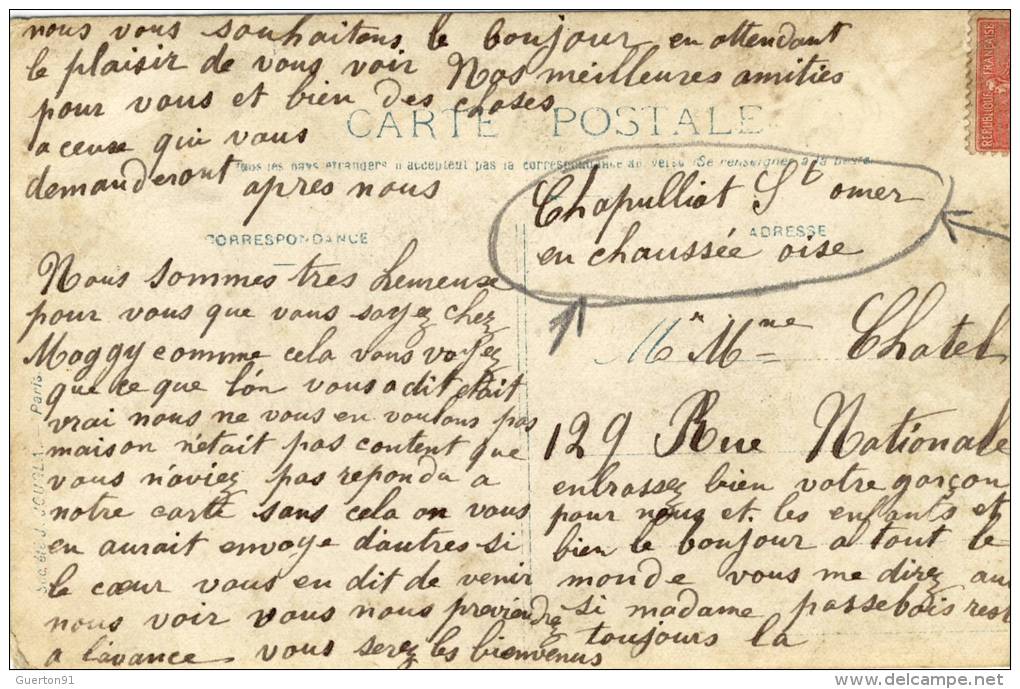 nous vous souhaitons le bonjour en attendant
le plaisir de vous voir Nos meilleures amities
pour vous et bien des choses
a ceuse qui vous
demanderont apres nous
CARTE POSTALE
Tous les pays étrangers n'acceptent pas la correspondance au verso (Se renseigner à la Poste)
RÉPUBLIQUE FRANÇAISE
Chapulliot St omer
en chaussée oise
CORRESPONDANCE
ADRESSE
Nous sommes tres hereuse
pour vous que vous soyez chez
Maggy comme cela vous voyez
que ce que l'on vous a dit était
vrai nous ne vous en voulons pas
maison n'etait pas content que
vous n'aviez pas repondu a
notre carte sans cela on vous
en aurait envoye d'autres si
le cœur vous en dit de venir
nous voir vous nous previendrez
a l'avance vous serez les bienvenus
Mr Mme Chatel
129 Rue Nationale
enbrassez bien votre garçon
pour nous et les enfants et
bien le bonjour a tout le
monde vous me direz aus
si madame passebois rest
toujours la
Paris
Guerton91
delcampe.net